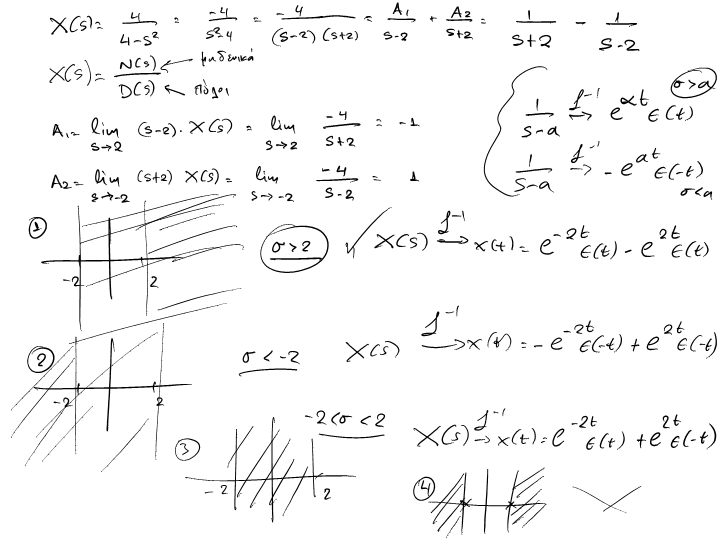 X(s) = 4/(4-s²) = -4/(s²-4) = -4/((s-2)(s+2)) = A₁/(s-2) + A₂/(s+2) = 1/(s+2) - 1/(s-2)
X(s) = N(s)/D(s) ← μηδενικά ← πόλοι
A₁ = lim s→2 (s-2)·X(s) = lim s→2 -4/(s+2) = -1
A₂ = lim s→-2 (s+2) X(s) = lim s→-2 -4/(s-2) = 1
σ>α
1/(s-a) ℒ⁻¹↔ e^{αt} ϵ(t)
1/(s-a) ℒ⁻¹→ -e^{at} ϵ(-t)
σ<α
① -2 2 σ>2 ✓ X(s) ℒ⁻¹→ x(t) = e^{-2t} ϵ(t) - e^{2t} ϵ(t)
② -2 2 σ<-2 X(s) ℒ⁻¹→ x(t) = -e^{-2t} ϵ(-t) + e^{2t} ϵ(-t)
③ -2 2 -2<σ<2 X(s) ℒ⁻¹→ x(t) = e^{-2t} ϵ(t) + e^{2t} ϵ(-t)
④